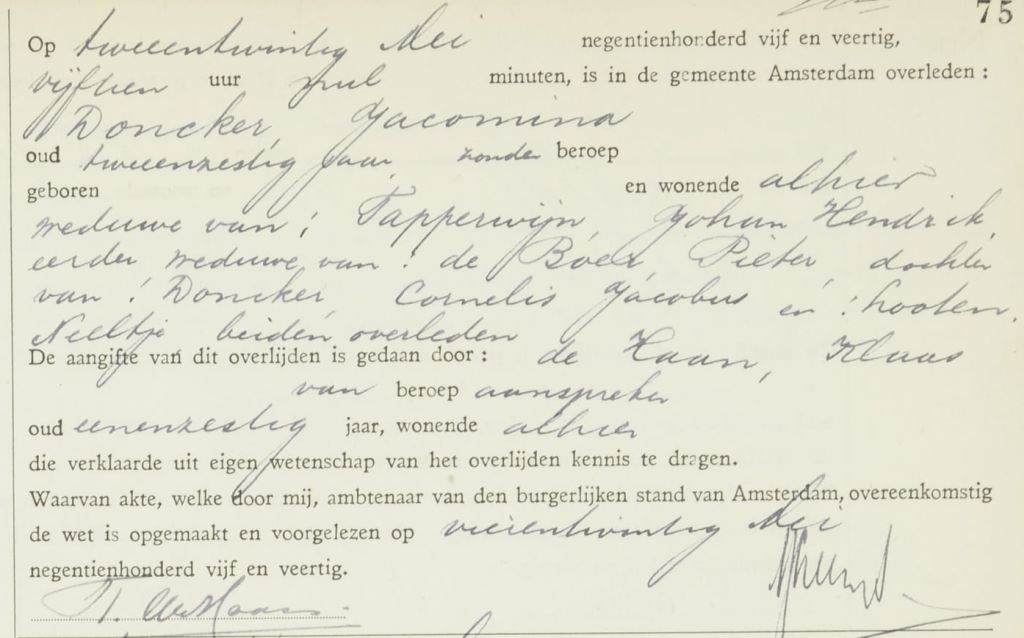 75
Op tweeentwintig Mei negentienhonderd vijf en veertig,
vijftien uur nul minuten, is in de gemeente Amsterdam overleden :
Doncker, Jacomina
oud tweeenzestig jaar, zonder beroep
geboren en wonende alhier
weduwe van: Tapperwijn, Johan Hendrik,
eerder weduwe van: de Boer, Pieter, dochter
van: Doncker, Cornelis Jacobus en: Looten,
Neeltje beiden overleden
De aangifte van dit overlijden is gedaan door : de Haan, Klaas
van beroep aanspreker
oud eenenzestig jaar, wonende alhier
die verklaarde uit eigen wetenschap van het overlijden kennis te dragen.
Waarvan akte, welke door mij, ambtenaar van den burgerlijken stand van Amsterdam, overeenkomstig
de wet is opgemaakt en voorgelezen op vierentwintig Mei
negentienhonderd vijf en veertig.